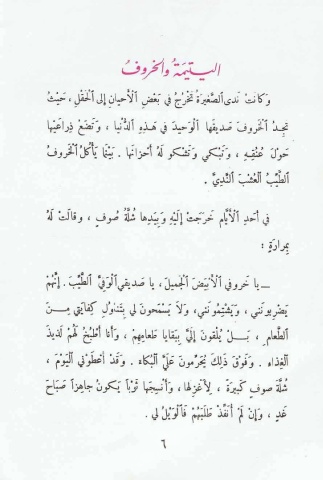 اليَتيمَةُ والخَروفُ
وَكانَتْ نَدى الصَّغيرَةُ تَخْرُجُ في بَعْضِ الأَحْيانِ إِلى الحَقْلِ، حَيْثُ
تَجِدُ الخَروفَ صَديقَها الوَحيدَ في هَذِهِ الدُّنْيا، وَتَضَعُ ذِراعَيْها
حَوْلَ عُنُقِهِ، وَتَبْكي وَتَشْكو لَهُ أَحْزانَها. بَيْنَما يَأْكُلُ الخَروفُ
الطَّيِّبُ العُشْبَ النَّدِيَّ.
في أَحَدِ الأَيّامِ خَرَجَتْ إِلَيْهِ وَبِيَدِها شُلَّةُ صُوفٍ، وَقالَتْ لَهُ
بِمَرارَةٍ :
ــ يا خَروفي الأَبْيَضَ الجَميلَ، يا صَديقي الوَفِيَّ الطَّيِّبَ. إِنَّهُمْ
يَضْرِبونَني، وَيَشْتِمونَني، وَلا يَسْمَحونَ لي بِتَناوُلِ كِفايَتي مِنَ
الطَّعامِ، بَلْ يُلْقونَ إِلَيَّ بِبَقايا طَعامِهِمْ، وَأَنا أَطْبُخُ لَهُمْ لَذيذَ
الغِذاءِ. وَفَوْقَ ذَلِكَ يُحَرِّمونَ عَلَيَّ البُكاءَ. وَقَدْ أَعْطَوْني اليَوْمَ،
شُلَّةَ صوفٍ كَبيرَةً، لِأَغْزِلَها، وَأَنْسِجَها ثَوْبًا يَكونُ جاهِزًا صَباحَ
غَدٍ، وَإِنْ لَمْ أُنَفِّذْ طَلَبَهُمْ فَالوَيْلُ لي.
٦